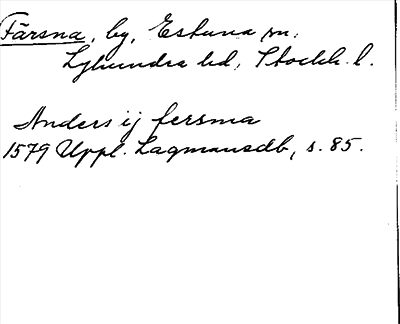 Färsna, by, Estuna sn.
Lyhundra hd, Stockh. l.
Anders ij fersma
1579 Uppl. Lagmansdb, s. 85.